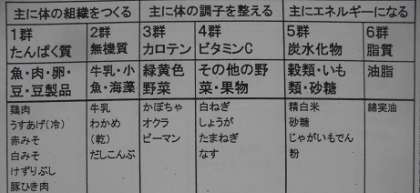 主に体の組織をつくる 主に体の調子を整える 主にエネルギーになる
1群 2群 3群 4群 5群 6群
たんぱく質 無機質 カロテン ビタミンC 炭水化物 脂質
魚・肉・卵・ 牛乳・小 緑黄色 その他の野 穀類・いも 油脂
豆・豆製品 魚・海藻 野菜 菜・果物 類・砂糖
鶏肉 牛乳 かぼちゃ 白ねぎ 精白米 綿実油
うすあげ(冷) わかめ オクラ しょうが 砂糖
赤みそ (乾) ピーマン たまねぎ じゃがいもでん
白みそ だしこんぶ なす 粉
けずりぶし
豚ひき肉